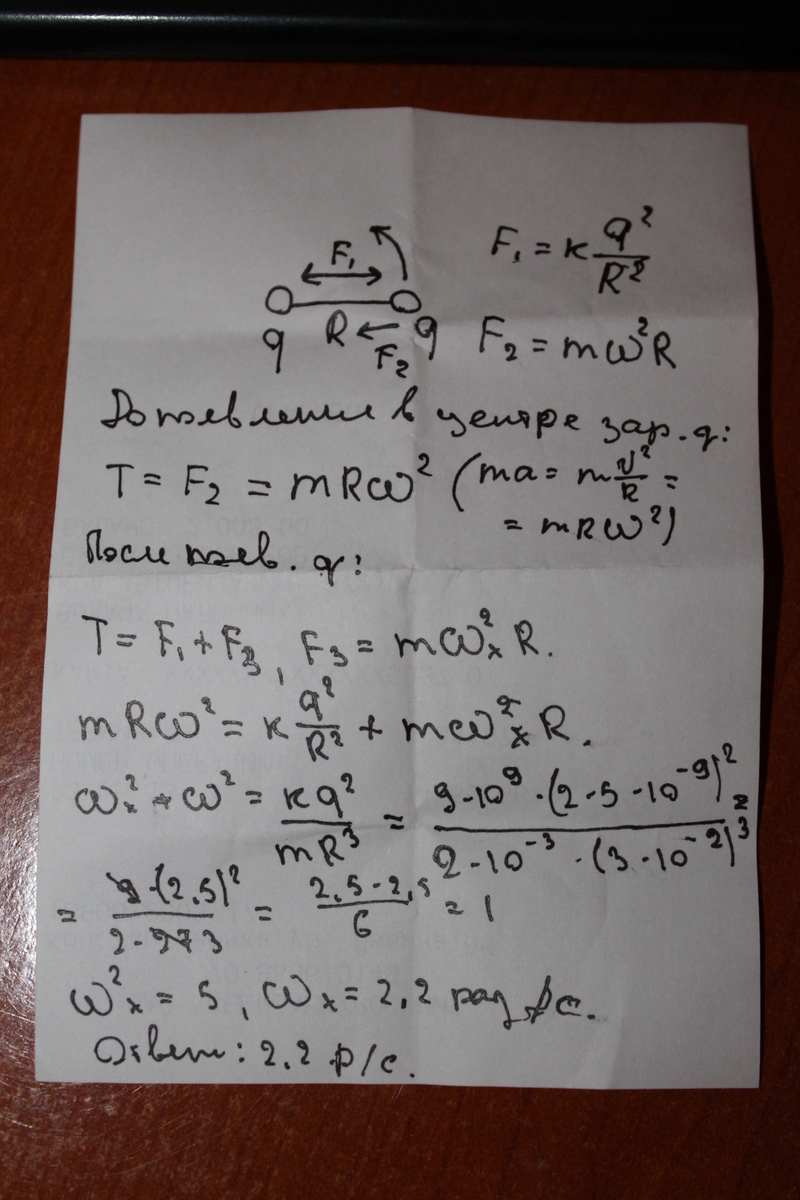 F₁
F₁ = к q²/R²
q R q
F₂
F₂ = mω²R
До появления в центре зар. q:
T = F₂ = mRω² (ma = m v²/R =
= mRω²)
После появ. q:
T = F₁ + F₃, F₃ = mωₓ² R.
mRω² = к q²/R² + mωₓ² R.
ωₓ² - ω² = кq²/mR³ = 9·10⁹·(2.5·10⁻⁹)²/2·10⁻³·(3·10⁻²)³ =
= 9·(2,5)²/2·27 3 = 2,5·2,5/6 = 1
ωₓ² = 5, ωₓ = 2,2 рад/с.
Ответ: 2.2 р/с.